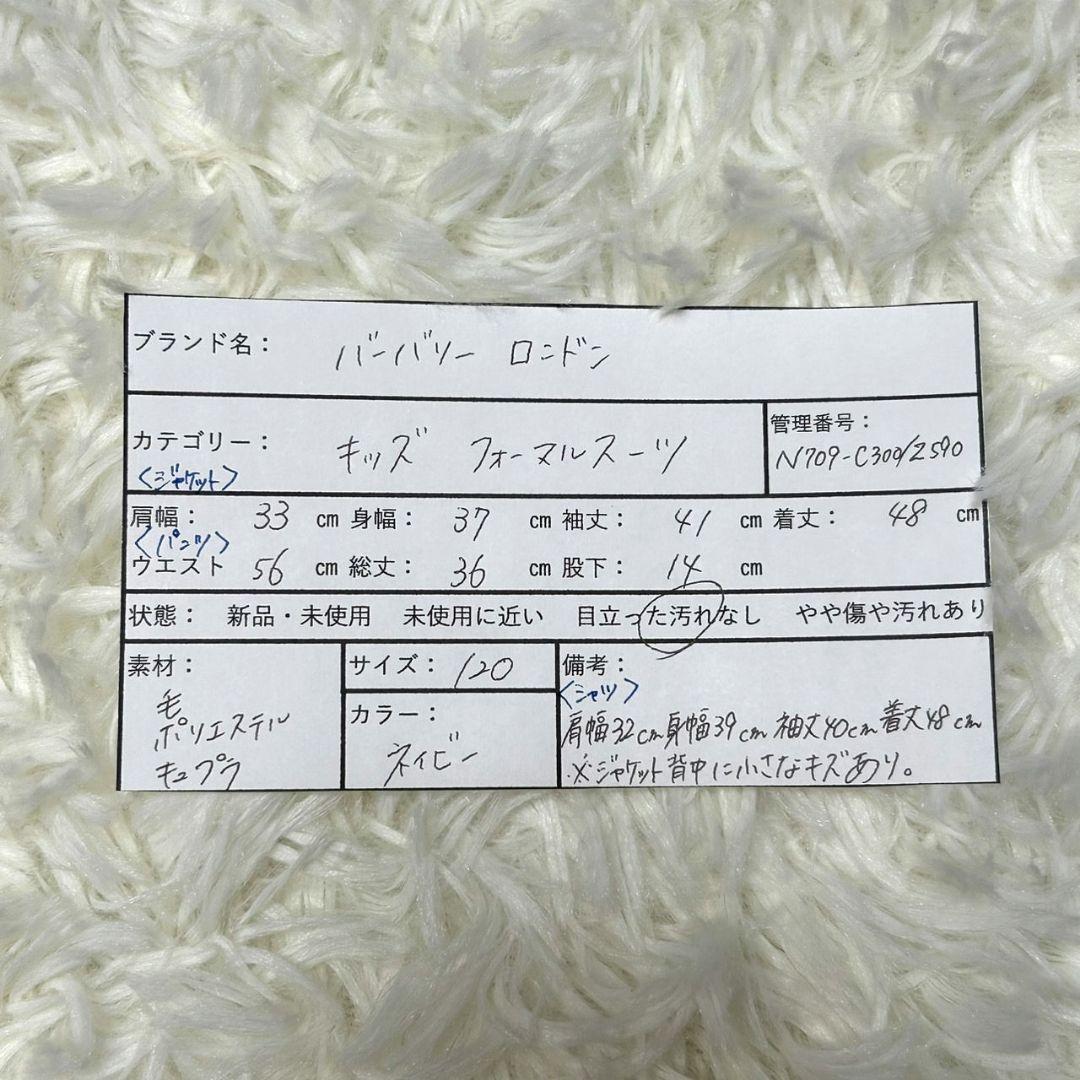 ブランド名： バーバリー ロンドン
カテゴリー： キッズ フォーマルスーツ
管理番号：
N709-C300/2590
<ジャケット>
肩幅： 33 cm 身幅： 37 cm 袖丈： 41 cm 着丈： 48 cm
<パンツ>
ウエスト 56 cm 総丈： 36 cm 股下： 14 cm
状態： 新品・未使用 未使用に近い 目立った汚れなし やや傷や汚れあり
素材：
毛
ポリエステル
キュプラ
サイズ： 120
カラー：
ネイビー
備考：
<シャツ>
肩幅32cm 身幅39cm 袖丈40cm 着丈48cm
※ジャケット背中に小さなキズあり。